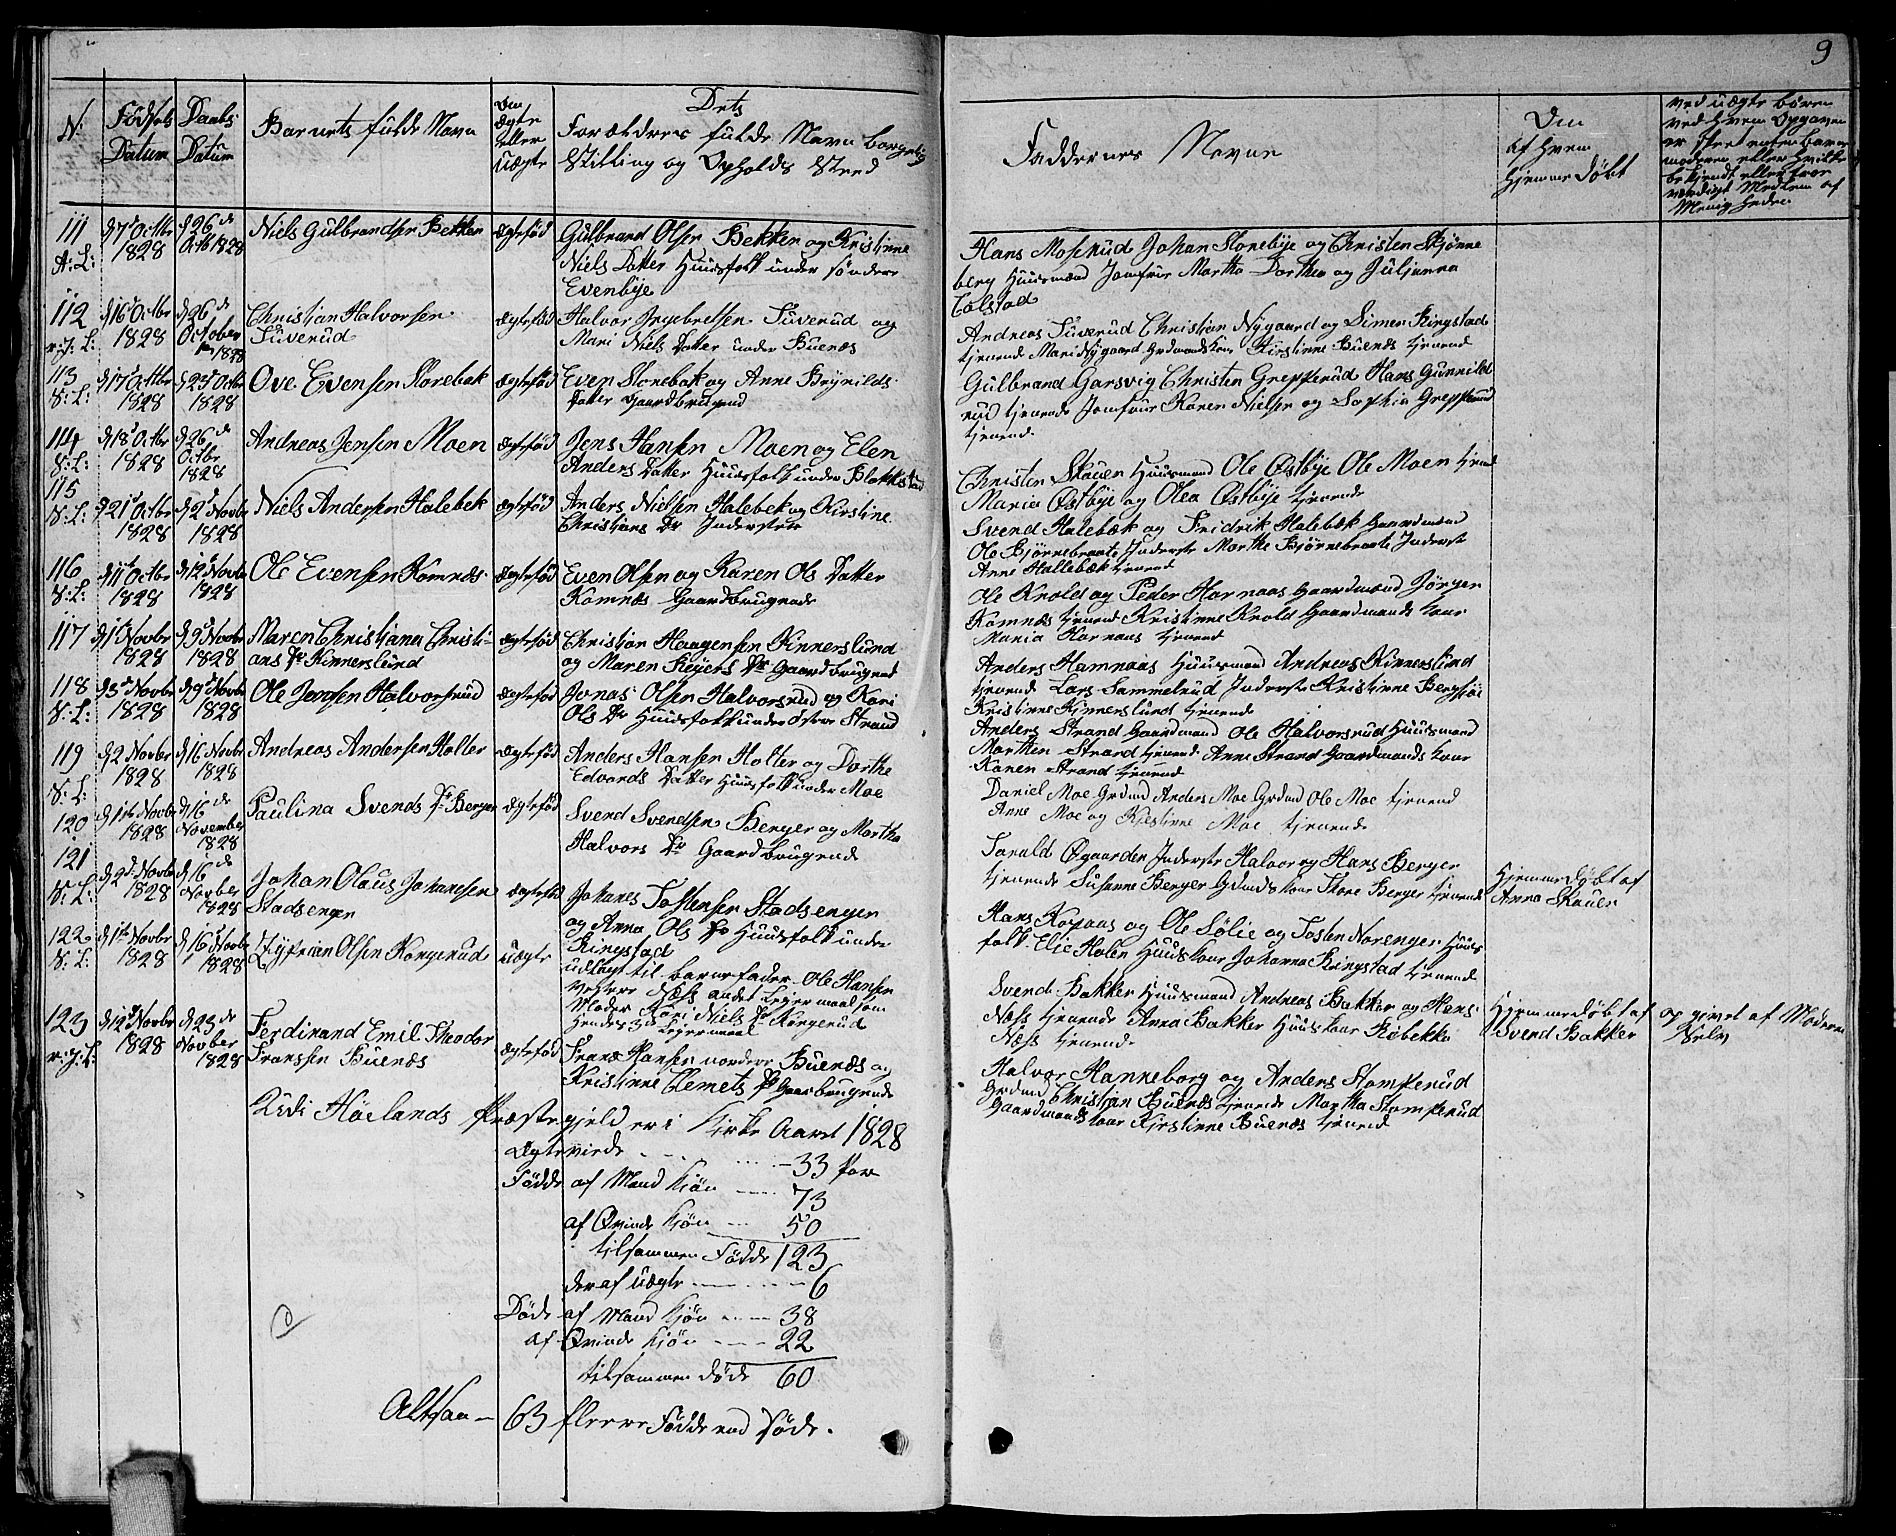 9
N:
Fødsels Datum
Daabs Datum
Barnets fulde Navn
Om Ægte eller uægte
Dets
Forældres fulde Navn borgerlig
Stilling og Opholds Sted
Faddernes Navne
Om
af hvem
hjemme døbt
ved uægte børn
ved hvem Opgaven
er skeet enten barne
moderen eller hvilke
bekjendt eller troe
værdigt Medlem af
Menigheden
111
A: L:
d 7d Octbr 1828
d 26de Octb 1828
Niels Gulbrandsen Bekken
ægtefød
Gulbrand Olsen Bekken og Kristinne
Niels Datter Huusfolk under søndere
Evenbye
Hans Moserud Johan Stonebye og Christen Skjønne
berg Huusmænd Jomfrue Martha Dorthea og Juljanna
Tolstad
112
v: J: L:
d 16d Octbr 1828
d 26de October 1828
Christian Halvorsen
Tuverud
ægtefød
Halvor Ingebretsen Tuverud og
Mari Niels Datter under Buenæs
Andreas Tuverud Christian Nygaard og Simen Ringstad
tjenend Mari Nygaard Grdmands kone Kirstinne Buenæs tjenend
113
V: L:
d 17d Octbr 1828
d 23d Octbr 1828
Ove Evensen Stonebek
ægtefød
Even Stonebek og Anne Brynilds
Datter Gaardbrugend
Gulbrand Garsvig Christen Grepperud Hans Gunnild
rud tjenende Jomfrue Karen Nielsen og Sophia Grepperud
tjenend
114
V: L:
d 18d Octbr 1828
d 26de Octbr 1828
Andreas Jensen Moen
ægtefød
Jens Hansen Moen og Elen
Anders Datter Huusfolk under Blakkestad
Christen Skauen Huusmand Ole Østbye Ole Moen tjenend
Maria Østbye og Olea Østbye tjenende
115
V: L:
d 21d Octbr 1828
d 2d Novbr 1828
Niels Andersen Halebek
ægtefød
Anders Nielsen Halebek og Kirstine
Christians Dr Inderster
Svend Halebæk og Fridrik Halebæk Gaardmænd
Ole Bjørnebraate Inderste Marthe Bjørnebraate Inderst
Anne Hallebæk tjenend
116
V: L:
d 11d Octbr 1828
d 12d Novbr 1828
Ole Evensen Komnæs
ægtefød
Even Olsen og Karen Ols Datter
Komnæs Gaardbrugende
Ole Krold og Peder Hornaas Gaardmænd Jørgen
Komnæs tjenend Kristinne Krold Gaardmands kone
Maria Hornaas tjenend
117
d 1d Novbr 1828
d 9d Novbr 1828
Maren Christiana Christi-
ans Dr Kinnerslund
ægtefød
Christian Haagensen Kinnerslund
og Maren Reiers Dr Gaardbrugend
Anders Hamnaas Huusmand Andreas Kinnerslund
tjenend Lars Sammelrud Inderste Kristinne Bergsjøe
Kristinne Kinnerslund tjenende
118
V: L:
d 3d Novbr 1828
d 9d Novbr 1828
Ole Jonsen Halvorsrud
ægtefød
Jonas Olsen Halvorsrud og Kari
Ols Dr Huusfolk under østere Strand
Anders Strand Gaardmand Ole Halvorsrud Huusmand
Marthen Strand tjenend Anne Strand Gaardmands kone
Karen Strand tjenend
119
V: L:
d 2 Novbr 1828
d 16 Novbr 1828
Andreas Andersen Holter
ægtefød
Anders Hansen Holter og Dorthe
Edvards Datter Huusfolk under Moe
Daniel Moe Grdmd Anders Moe Grdmd Ole Moe tjenend
Anne Moe og Kjestinne Moe tjenende
120
d 1ste Novbr 1828
d 16de November 1828
Paulina Svends Dr Berger
ægtefød
Svend Svendsen Berger og Martha
Halvors Dr Gaardbrugende
Torald Øgaarden Inderste Halvor og Hans Berger
tjenende Susanne Berger Grdmds kone Thore Berger tjenende
121
V: L:
d 2d Novbr 1828
d 16de Novber 1828
Johan Olaus Johanesen
Stadsenger
ægtefød
Johanes Tostensen Stadsenger
og Anna Ols Dr Huusfolk under
Ringstad
Hans Kopaas og Ole Sølie og Tosten Norenger Huus
folk Elie Holen Huuskone Johanna Ringstad tjenende
Hjemmedøbt af
Anna Skauen
122
V: L:
d 11te Novbr 1828
d 16d Novbr 1828
Zyprian Olsen Kongerud
uægte
udlagt til barnefader Ole Hansen
vestere Næss andet Lejermaal som
Moder Kari Niels Dr Kongerud
hendes 3de Lejermaal
Svend Bakker Huusmand Andreas Bakker og Hans
Næss tjenende Anna Bakker Huuskone Rebekka
Næss tjenende
Hjemmedøbt af
Svend Bakker
opgivet af Moderen
Selv
123
v: J: L:
d 12d Novbr 1828
d 23de Novber 1828
Ferdinand Emil Theodor
Fransen Buenæs
ægtefød
Frans Hansen nordere Buenæs og
Kristinne Clemets Dr Gaardbrugende
Halvor Hanneborg og Anders Stomperud
Grdmd Christian Buenæs tjenende Martha Stomperud
Gaardmands kone Kjestinne Buenæs tjenend
Udi Høelands Præstegjeld er i Kirke Aaret 1828
Ægteviede - - - 33 Par
Fødde af Mand Kjøn - - - 73
af Qvinde Kjøn - - - 50
tilsammen Fødde 123
deraf uægte - - - 6
Døde af Mand Kjøn - - - 38
af Qvinde Kjøn - - - 22
tilsammen døde 60
Altsaa - 63 fleere Fødde end Døde.